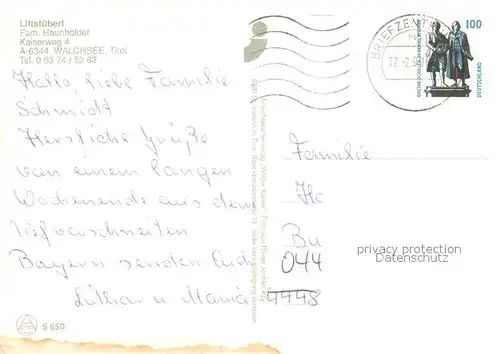 Liftstüberl
Fam. Haunholder
Kaiserweg 4
A-6344 WALCHSEE, Tirol
Tel. 0 53 74 / 52 62
BRIEFZENT
17.-2.
100
DEUTSCHLAND
Hallo, liebe Familie
Schmidt
Herzliche Grüße
von einem langen
Wochenende aus dem
tiefverschneiten
Bayern senden Euch
Lothar u. Maria
Familie
Ho
Bu
044
4448
privacy protection
Datenschutz
S 650